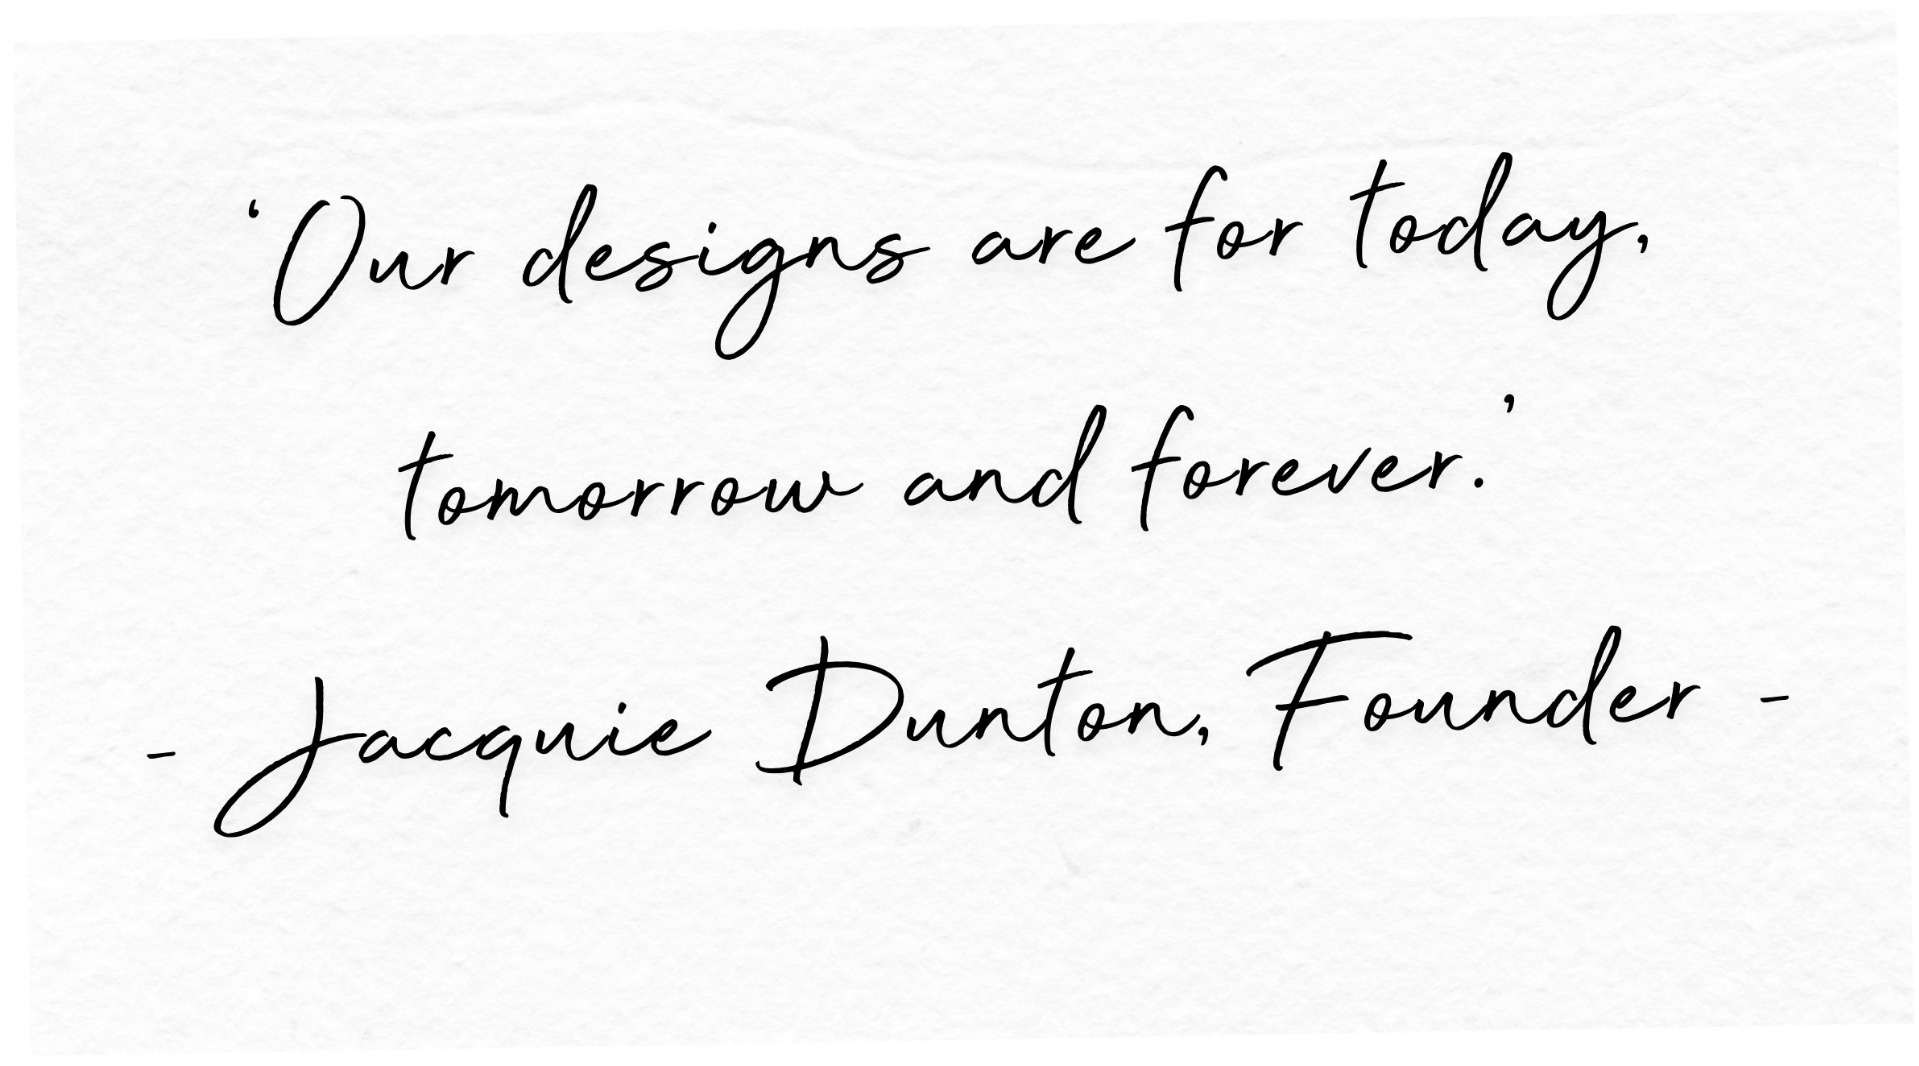 'Our designs are for today,
tomorrow and forever.'
- Jacquie Dunton, Founder -